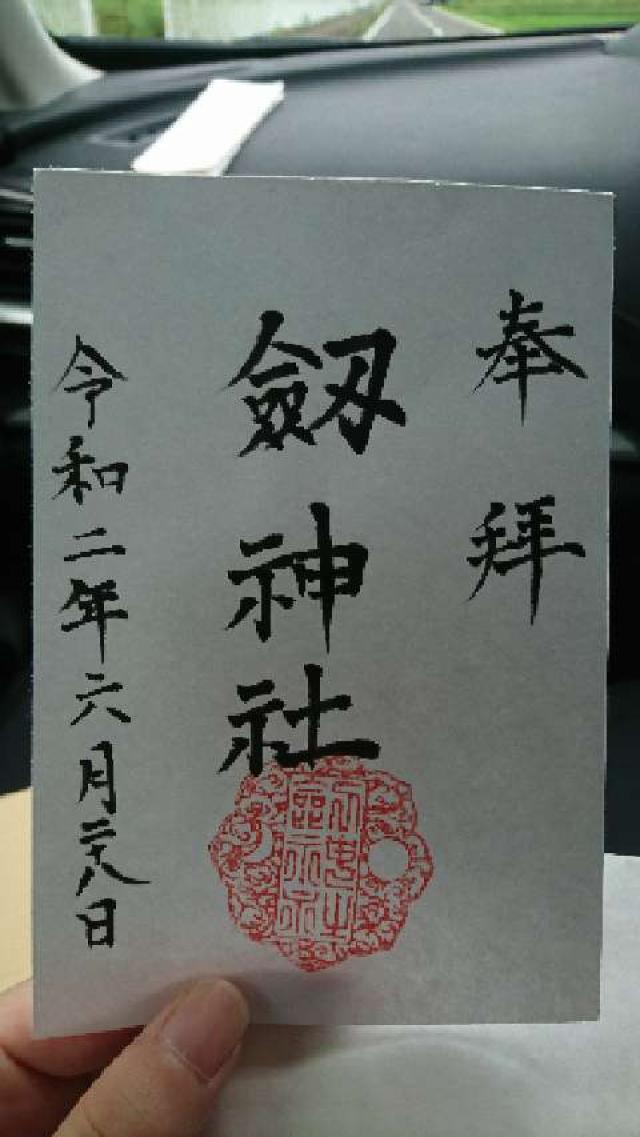 奉拜
劔神社
令和二年六月二十八日